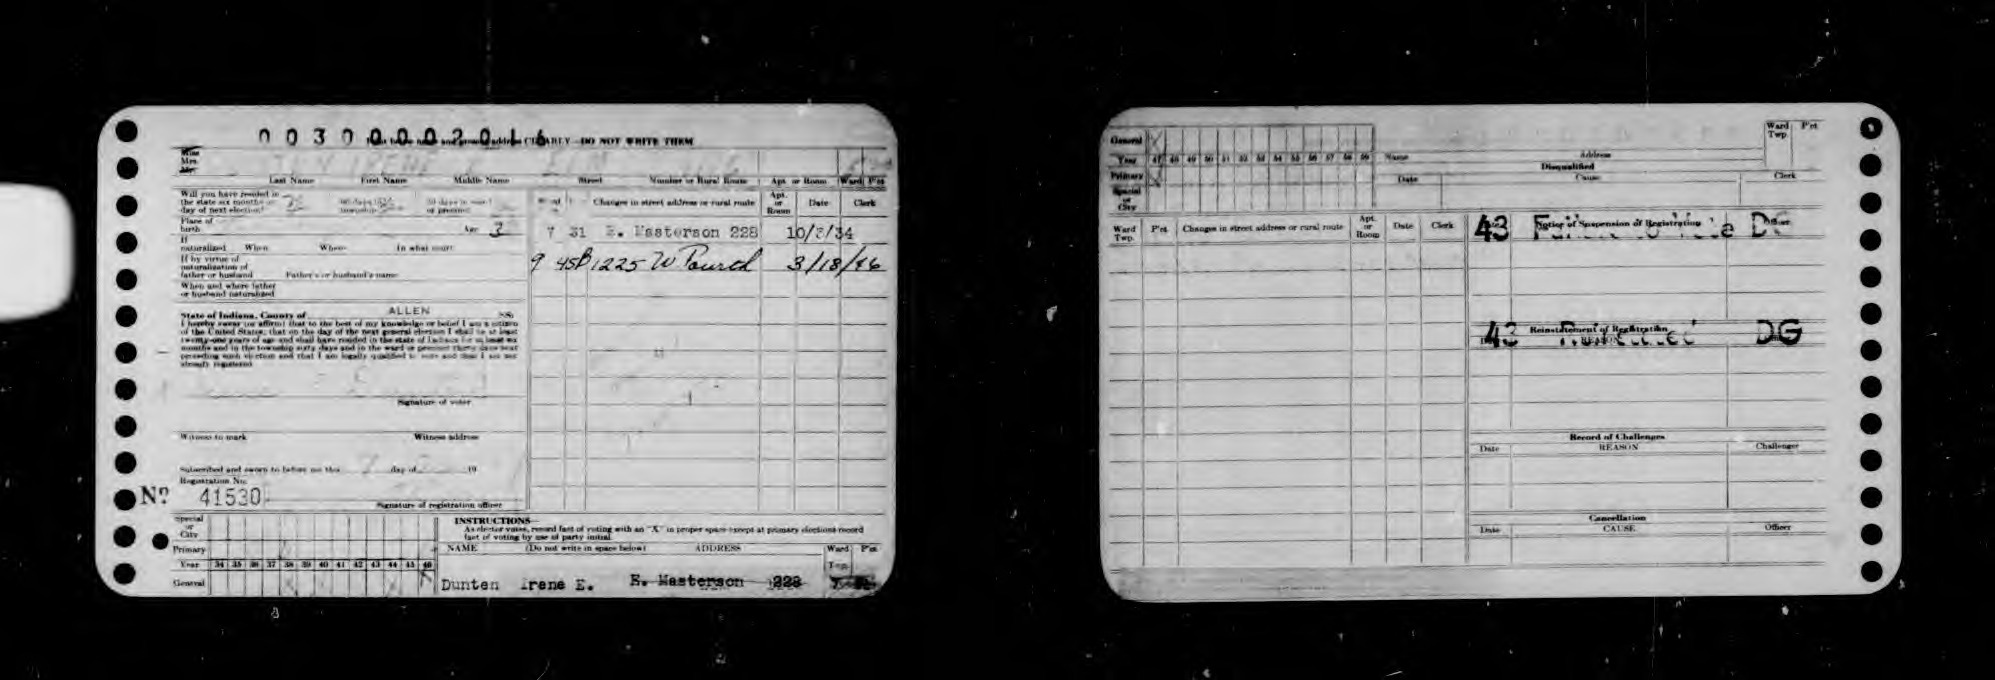 0030000201
and address CLEARLY—DO NOT WRITE THEM
Mrs.
Last Name First Name Middle Name Street Number or Rural Route Apt. or Room Ward P'ct
Will you have resided in
the state six months
day of next election?
Place of
birth Age
If
naturalized When Where In what court
If by virtue of
naturalization of
father or husband Father's or husband's name
When and where father
or husband naturalized
State of Indiana, County of ALLEN SS:
I hereby swear (or affirm) that to the best of my knowledge or belief I am a citizen
of the United States; that on the day of the next general election I shall be at least
twenty-one years of age and shall have resided in the state of Indiana for at least six
months and in the township sixty days and in the ward or precinct thirty days next
preceding such election and that I am legally qualified to vote and that I am not
already registered
Signature of voter
Witness to mark Witness address
Subscribed and sworn to before me this day of 19
Registration No.
No. 41530
Signature of registration officer
Changes in street address or rural route Apt. or Room Date Clerk
7 31 E. Masterson 228 10/8/34
9 45B 1225 W Fourth 3/18/46
Special
or
City
Primary
Year 34 35 36 37 38 39 40 41 42 43 44 45 46
General
INSTRUCTIONS—
As elector votes, record fact of voting with an "X" in proper space except at primary elections record
fact of voting by use of party initial.
NAME (Do not write in space below) ADDRESS Ward Twp. P'ct
Dunten Irene E. E. Masterson 228
General
Year 47 48 49 50 51 52 53 54 55 56 57 58 59
Primary
Special
or
City
Name Address Ward Twp. P'ct
Disqualified
Date Cause Clerk
Ward Twp. P'ct Changes in street address or rural route Apt. or Room Date Clerk
Notice of Suspension of Registration
43 DG
Reinstatement of Registration
REASON
43 DG
Record of Challenges
Date REASON Challenger
Cancellation
Date CAUSE Officer